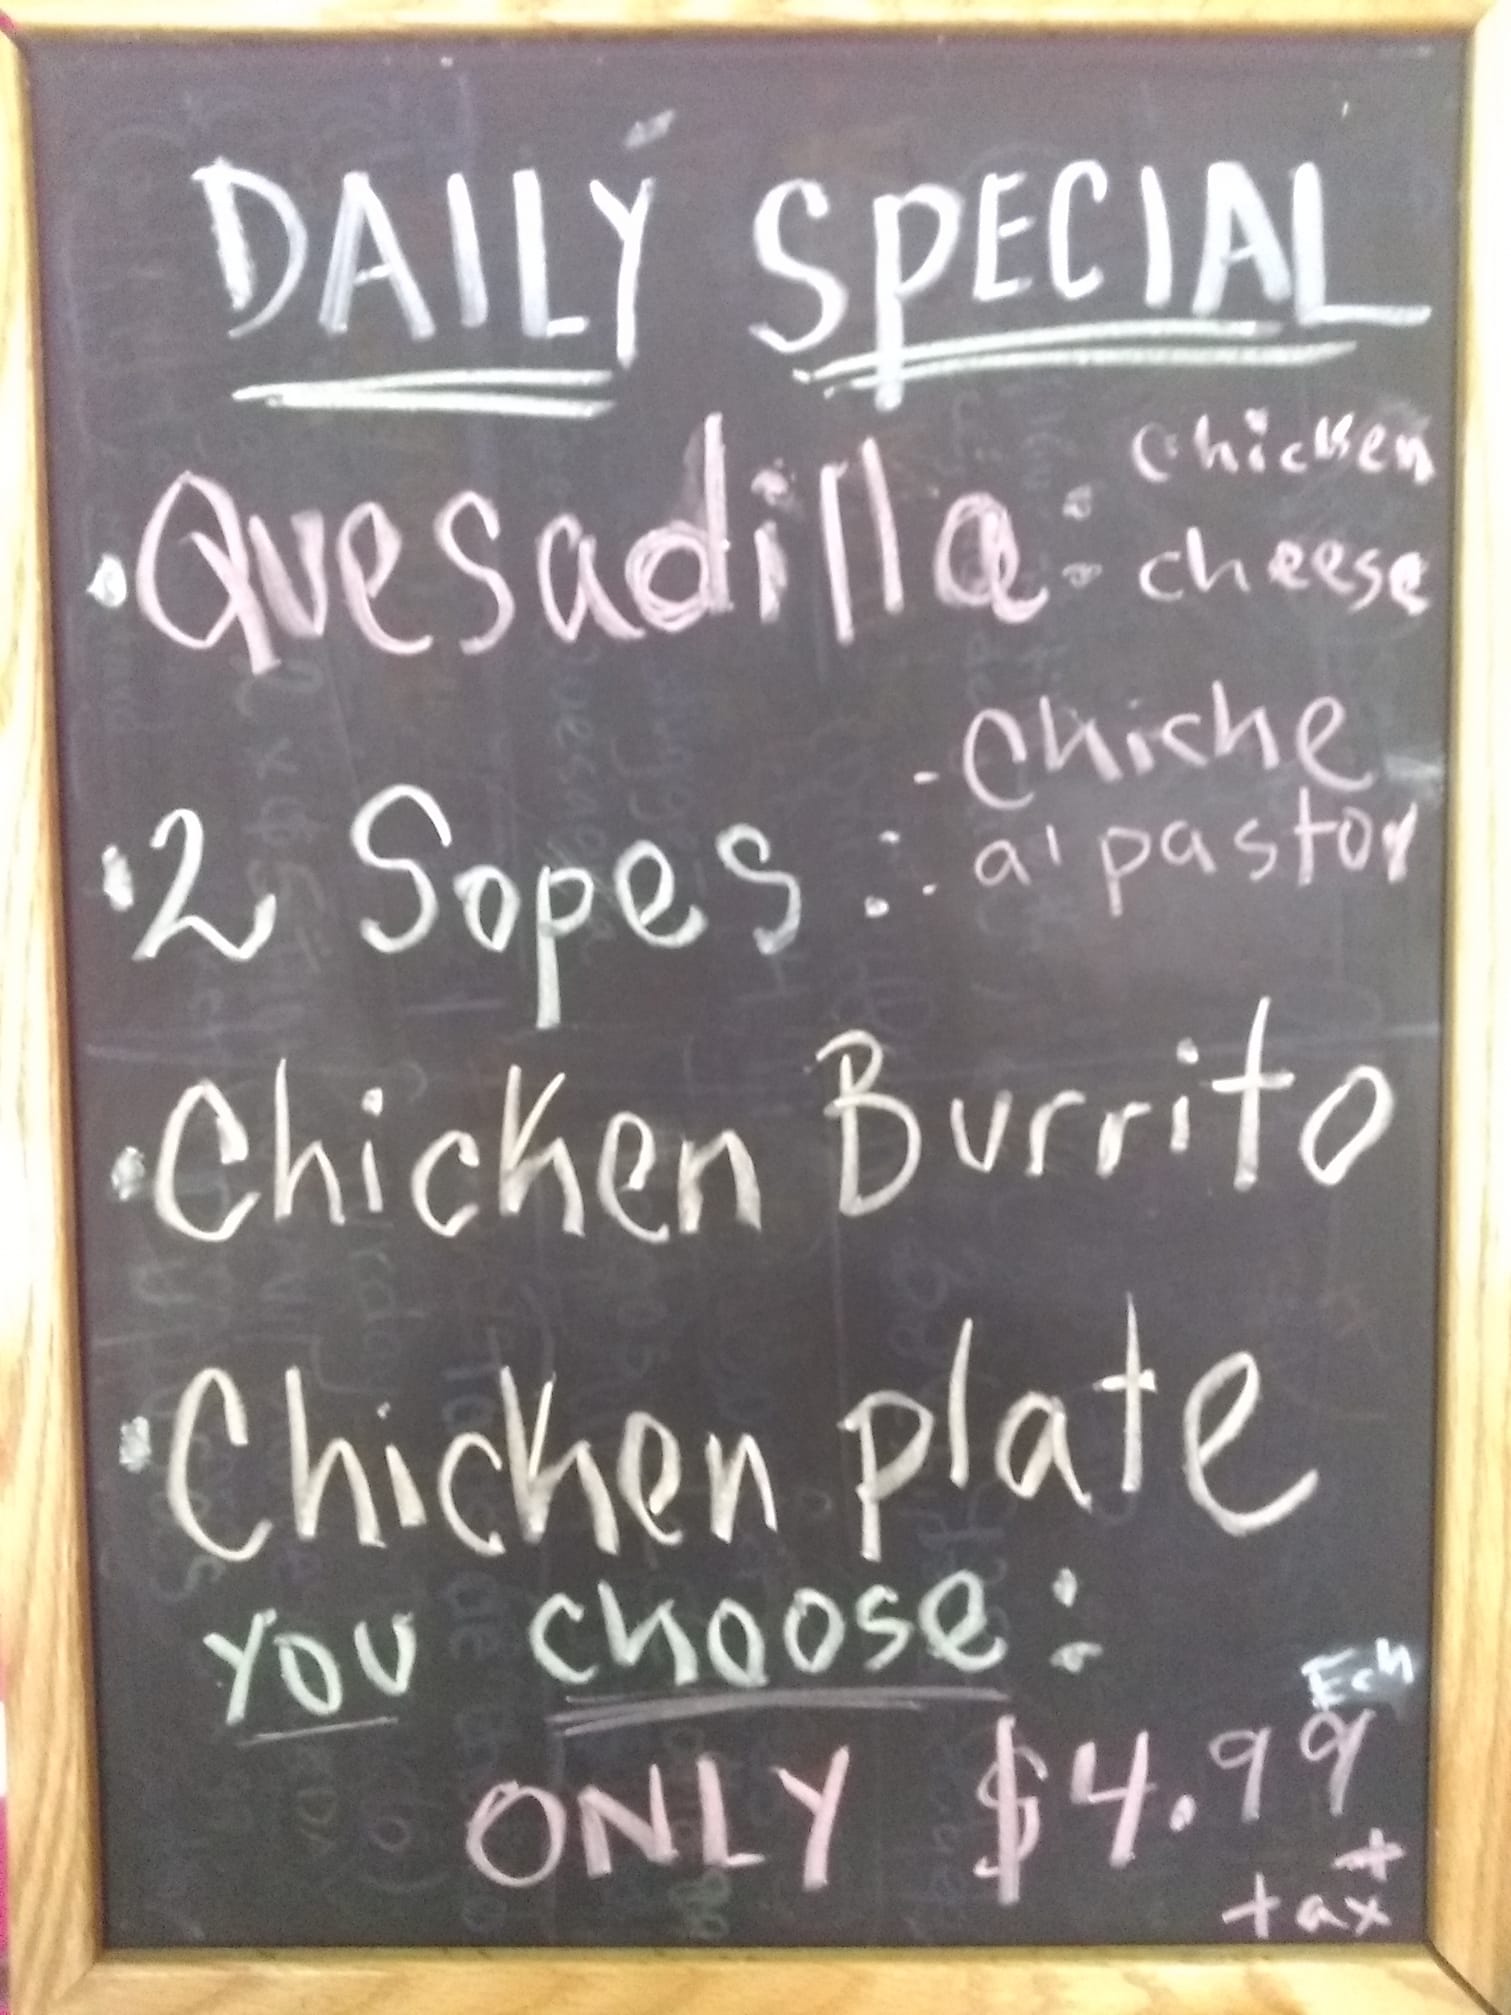 DAILY SPECIAL
• Quesadilla: chicken
cheese
• 2 Sopes: - Chiche
- a' pastor
• Chicken Burrito
• Chicken plate
You choose:
ONLY $4.99 Ech
+
tax